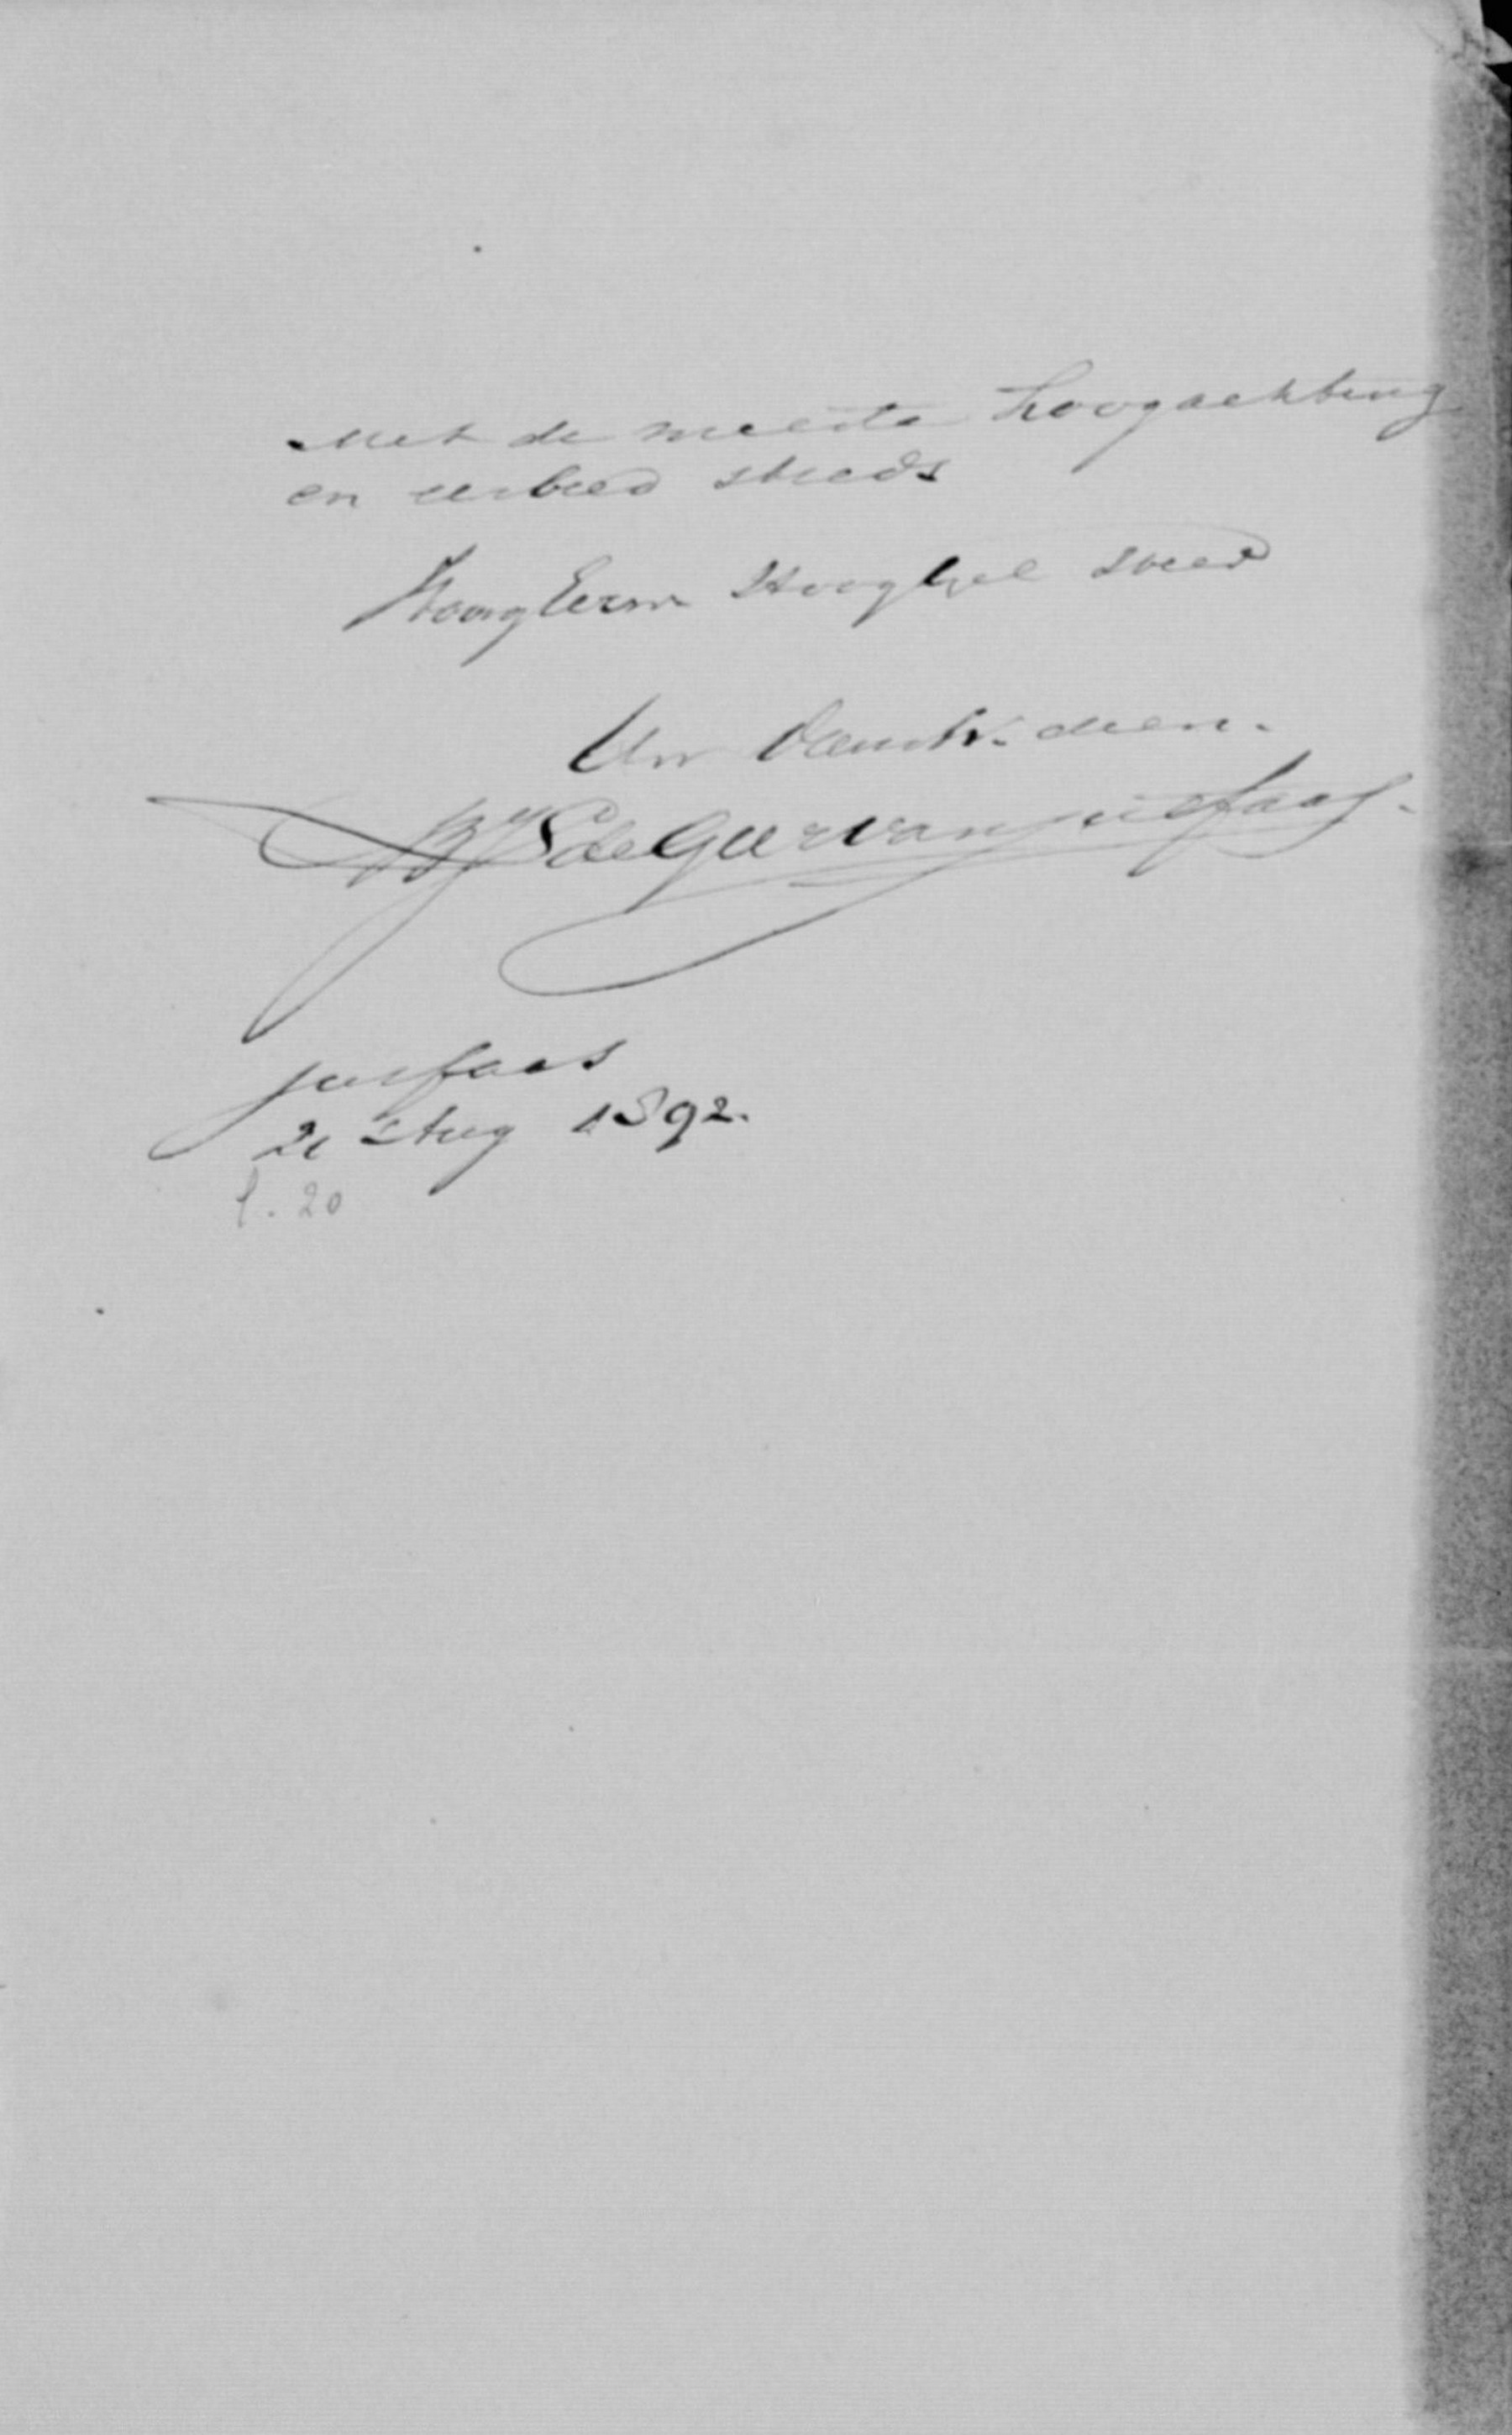 Met de meeste hoogachting
en eerbied steeds
HoogEerw Hooggel Heer
Uw dankb. dien.
BJL de Geer van Jutfaas.
Jutfaas
21 Aug 1892.
l. 20